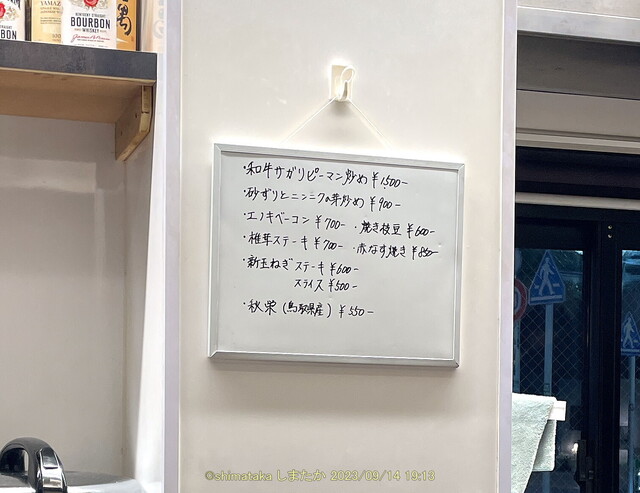 YAMAZ
KENTUCKY STRAIGHT
BOURBON
WHISKEY
・和牛サガリピーマン炒め ¥1,500-
・砂ずりとニンニクの芽炒め ¥900-
・エノキベーコン ¥700-
・焼き枝豆 ¥600-
・椎茸ステーキ ¥700-
・赤なす焼き ¥850-
・新玉ねぎステーキ ¥600-
スライス ¥500-
・秋栄(鳥取県産) ¥550-
©shimataka しまたか 2023/09/14 19:13